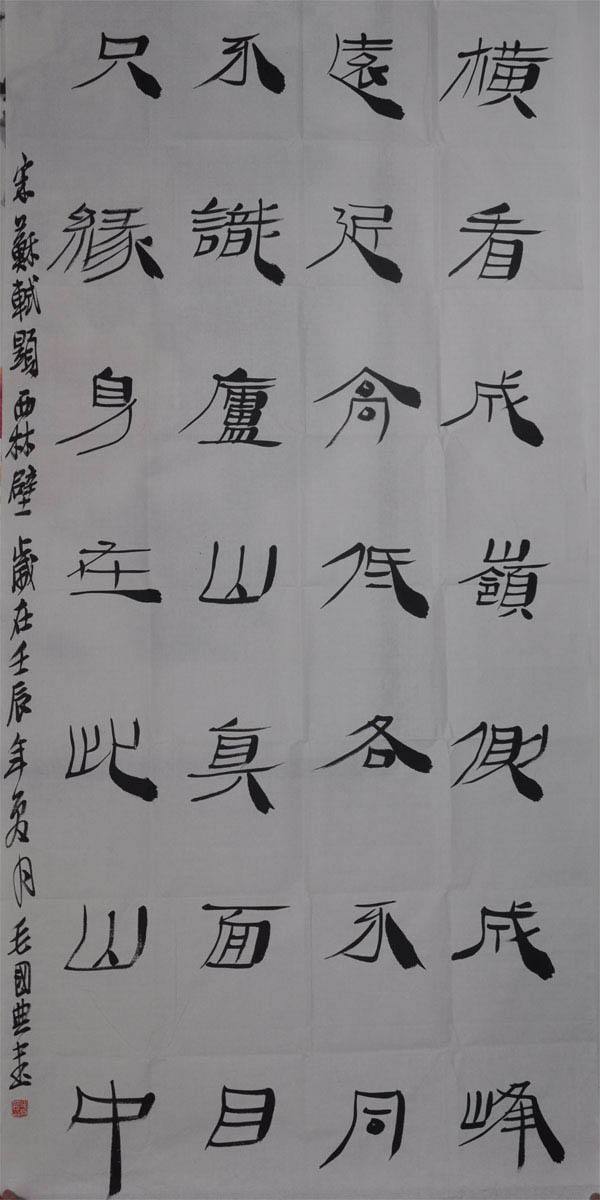 橫看成嶺側成峰
遠近高低各不同
不識廬山真面目
只緣身在此山中
宋蘇軾題西林壁 歲在壬辰年夏月 毛國典書